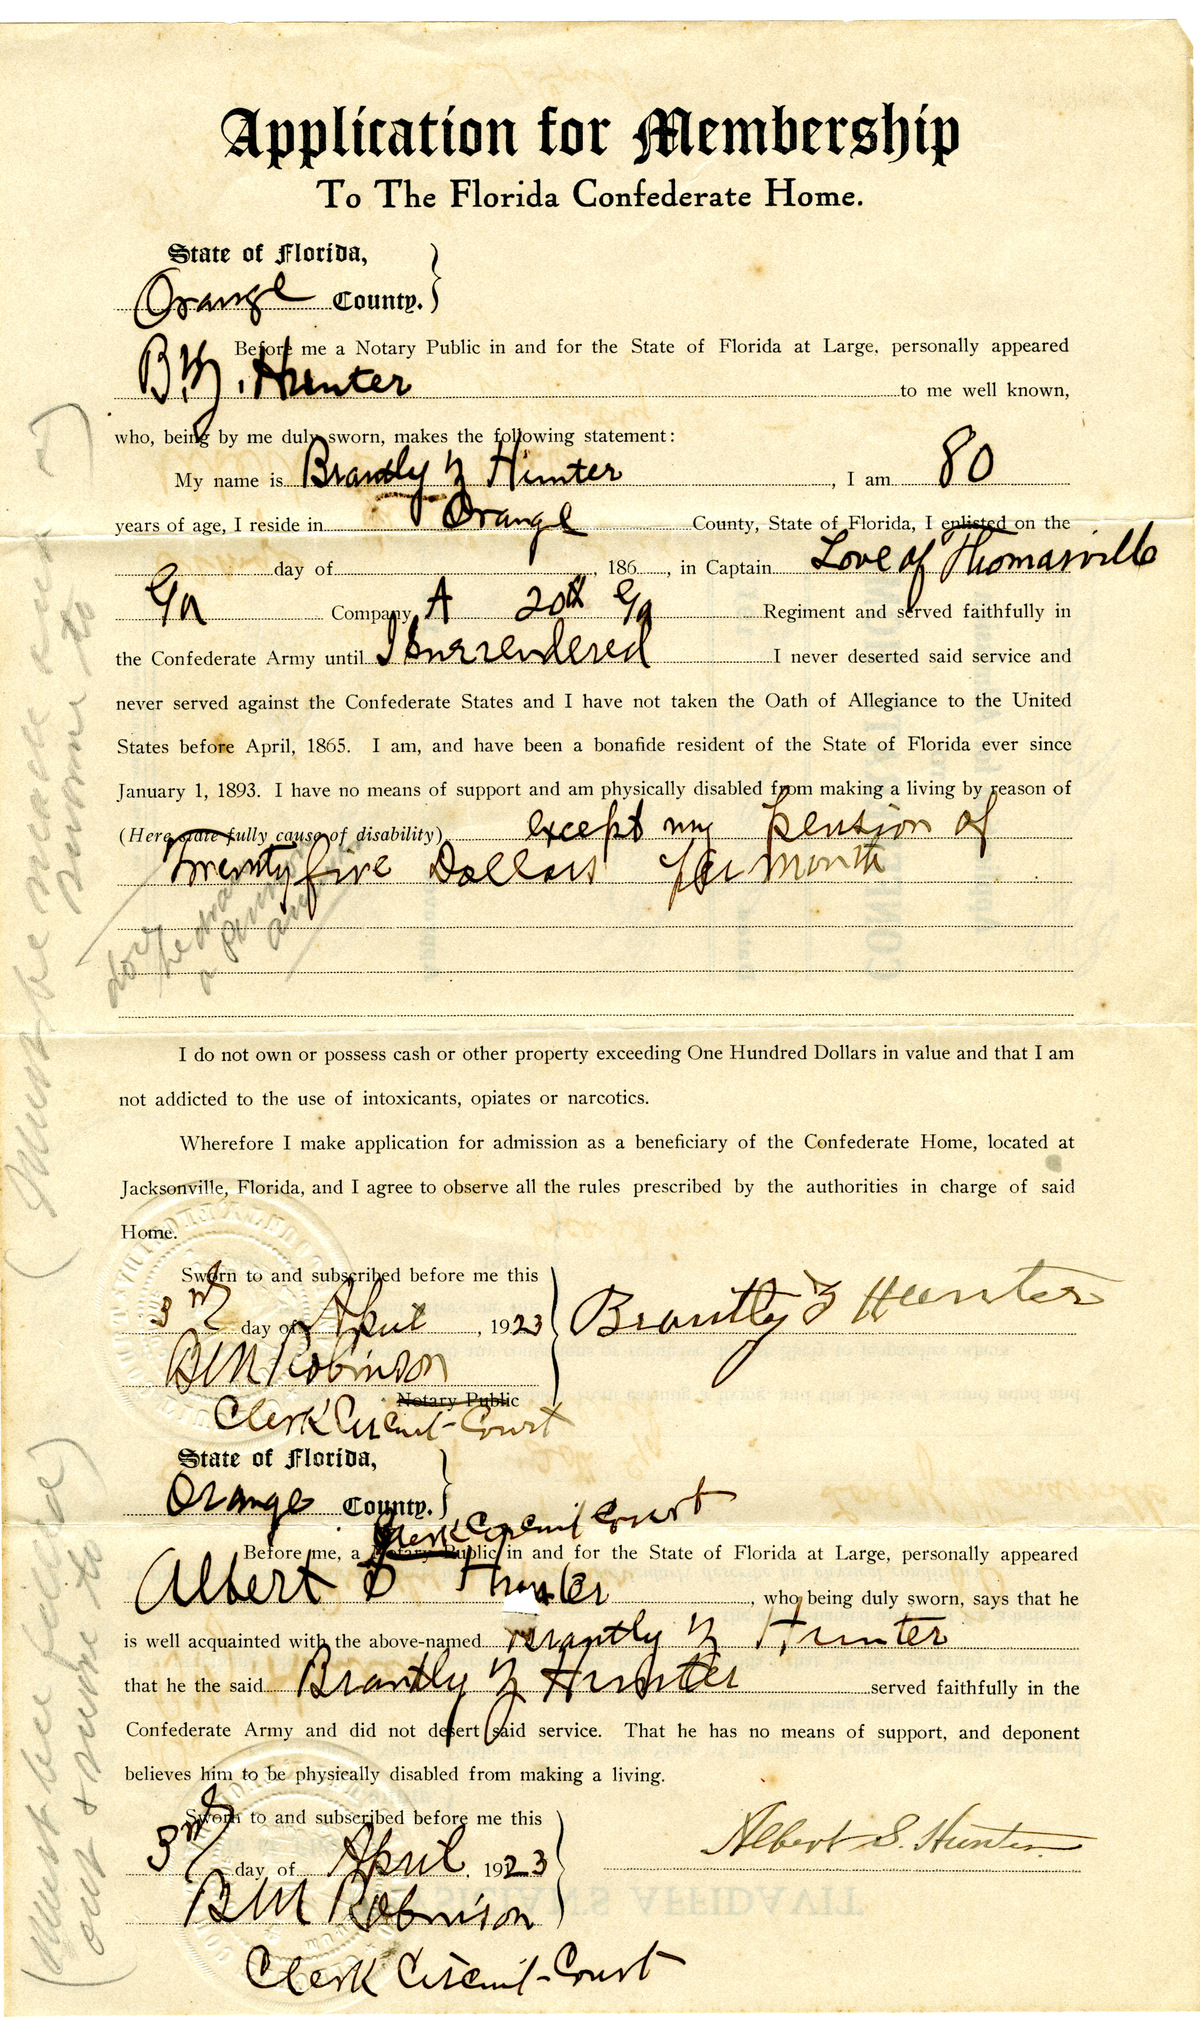 Application for Membership
To The Florida Confederate Home.
State of Florida,
Orange County.
Before me a Notary Public in and for the State of Florida at Large, personally appeared
B. Z. Hunter to me well known,
who, being by me duly sworn, makes the following statement:
My name is Brantly Z Hunter, I am 80
years of age, I reside in Orange County, State of Florida, I enlisted on the
day of , 186 , in Captain Love of Thomasville
Ga Company A 20th Ga Regiment and served faithfully in
the Confederate Army until I surrendered I never deserted said service and
never served against the Confederate States and I have not taken the Oath of Allegiance to the United
States before April, 1865. I am, and have been a bonafide resident of the State of Florida ever since
January 1, 1893. I have no means of support and am physically disabled from making a living by reason of
(Here state fully cause of disability) except my pension of
Twenty five Dollars per month
I do not own or possess cash or other property exceeding One Hundred Dollars in value and that I am
not addicted to the use of intoxicants, opiates or narcotics.
Wherefore I make application for admission as a beneficiary of the Confederate Home, located at
Jacksonville, Florida, and I agree to observe all the rules prescribed by the authorities in charge of said
Home.
Sworn to and subscribed before me this
3rd day of April, 1923
Brantly Z Hunter
B M Robinson
Notary Public
Clerk Circuit Court
State of Florida,
Orange County.
Clerk Circuit Court
Before me, a Notary Public in and for the State of Florida at Large, personally appeared
Albert S Hunter, who being duly sworn, says that he
is well acquainted with the above-named Brantly Z Hunter
that he the said Brantly Z Hunter served faithfully in the
Confederate Army and did not desert said service. That he has no means of support, and deponent
believes him to be physically disabled from making a living.
Sworn to and subscribed before me this
3rd day of April, 1923
Albert S. Hunter
B M Robinson
Clerk Circuit-Court
(Must be filled
out & sworn to